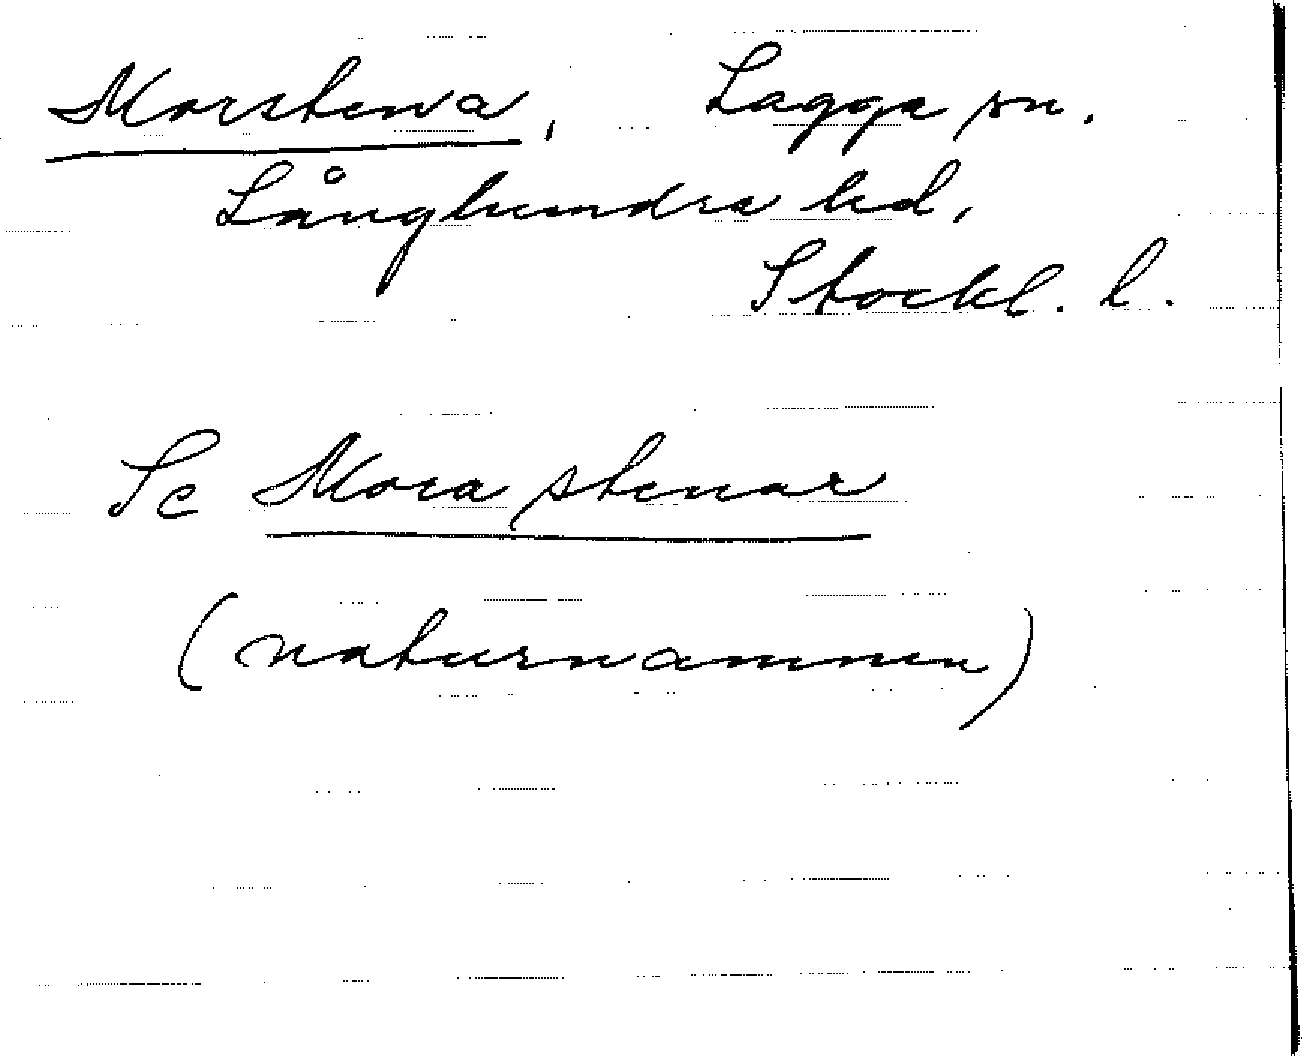 Morstena, Lagga sn.
Långhundra hd,
Stockl. l.
Se Mora stenar
(naturnamnen)